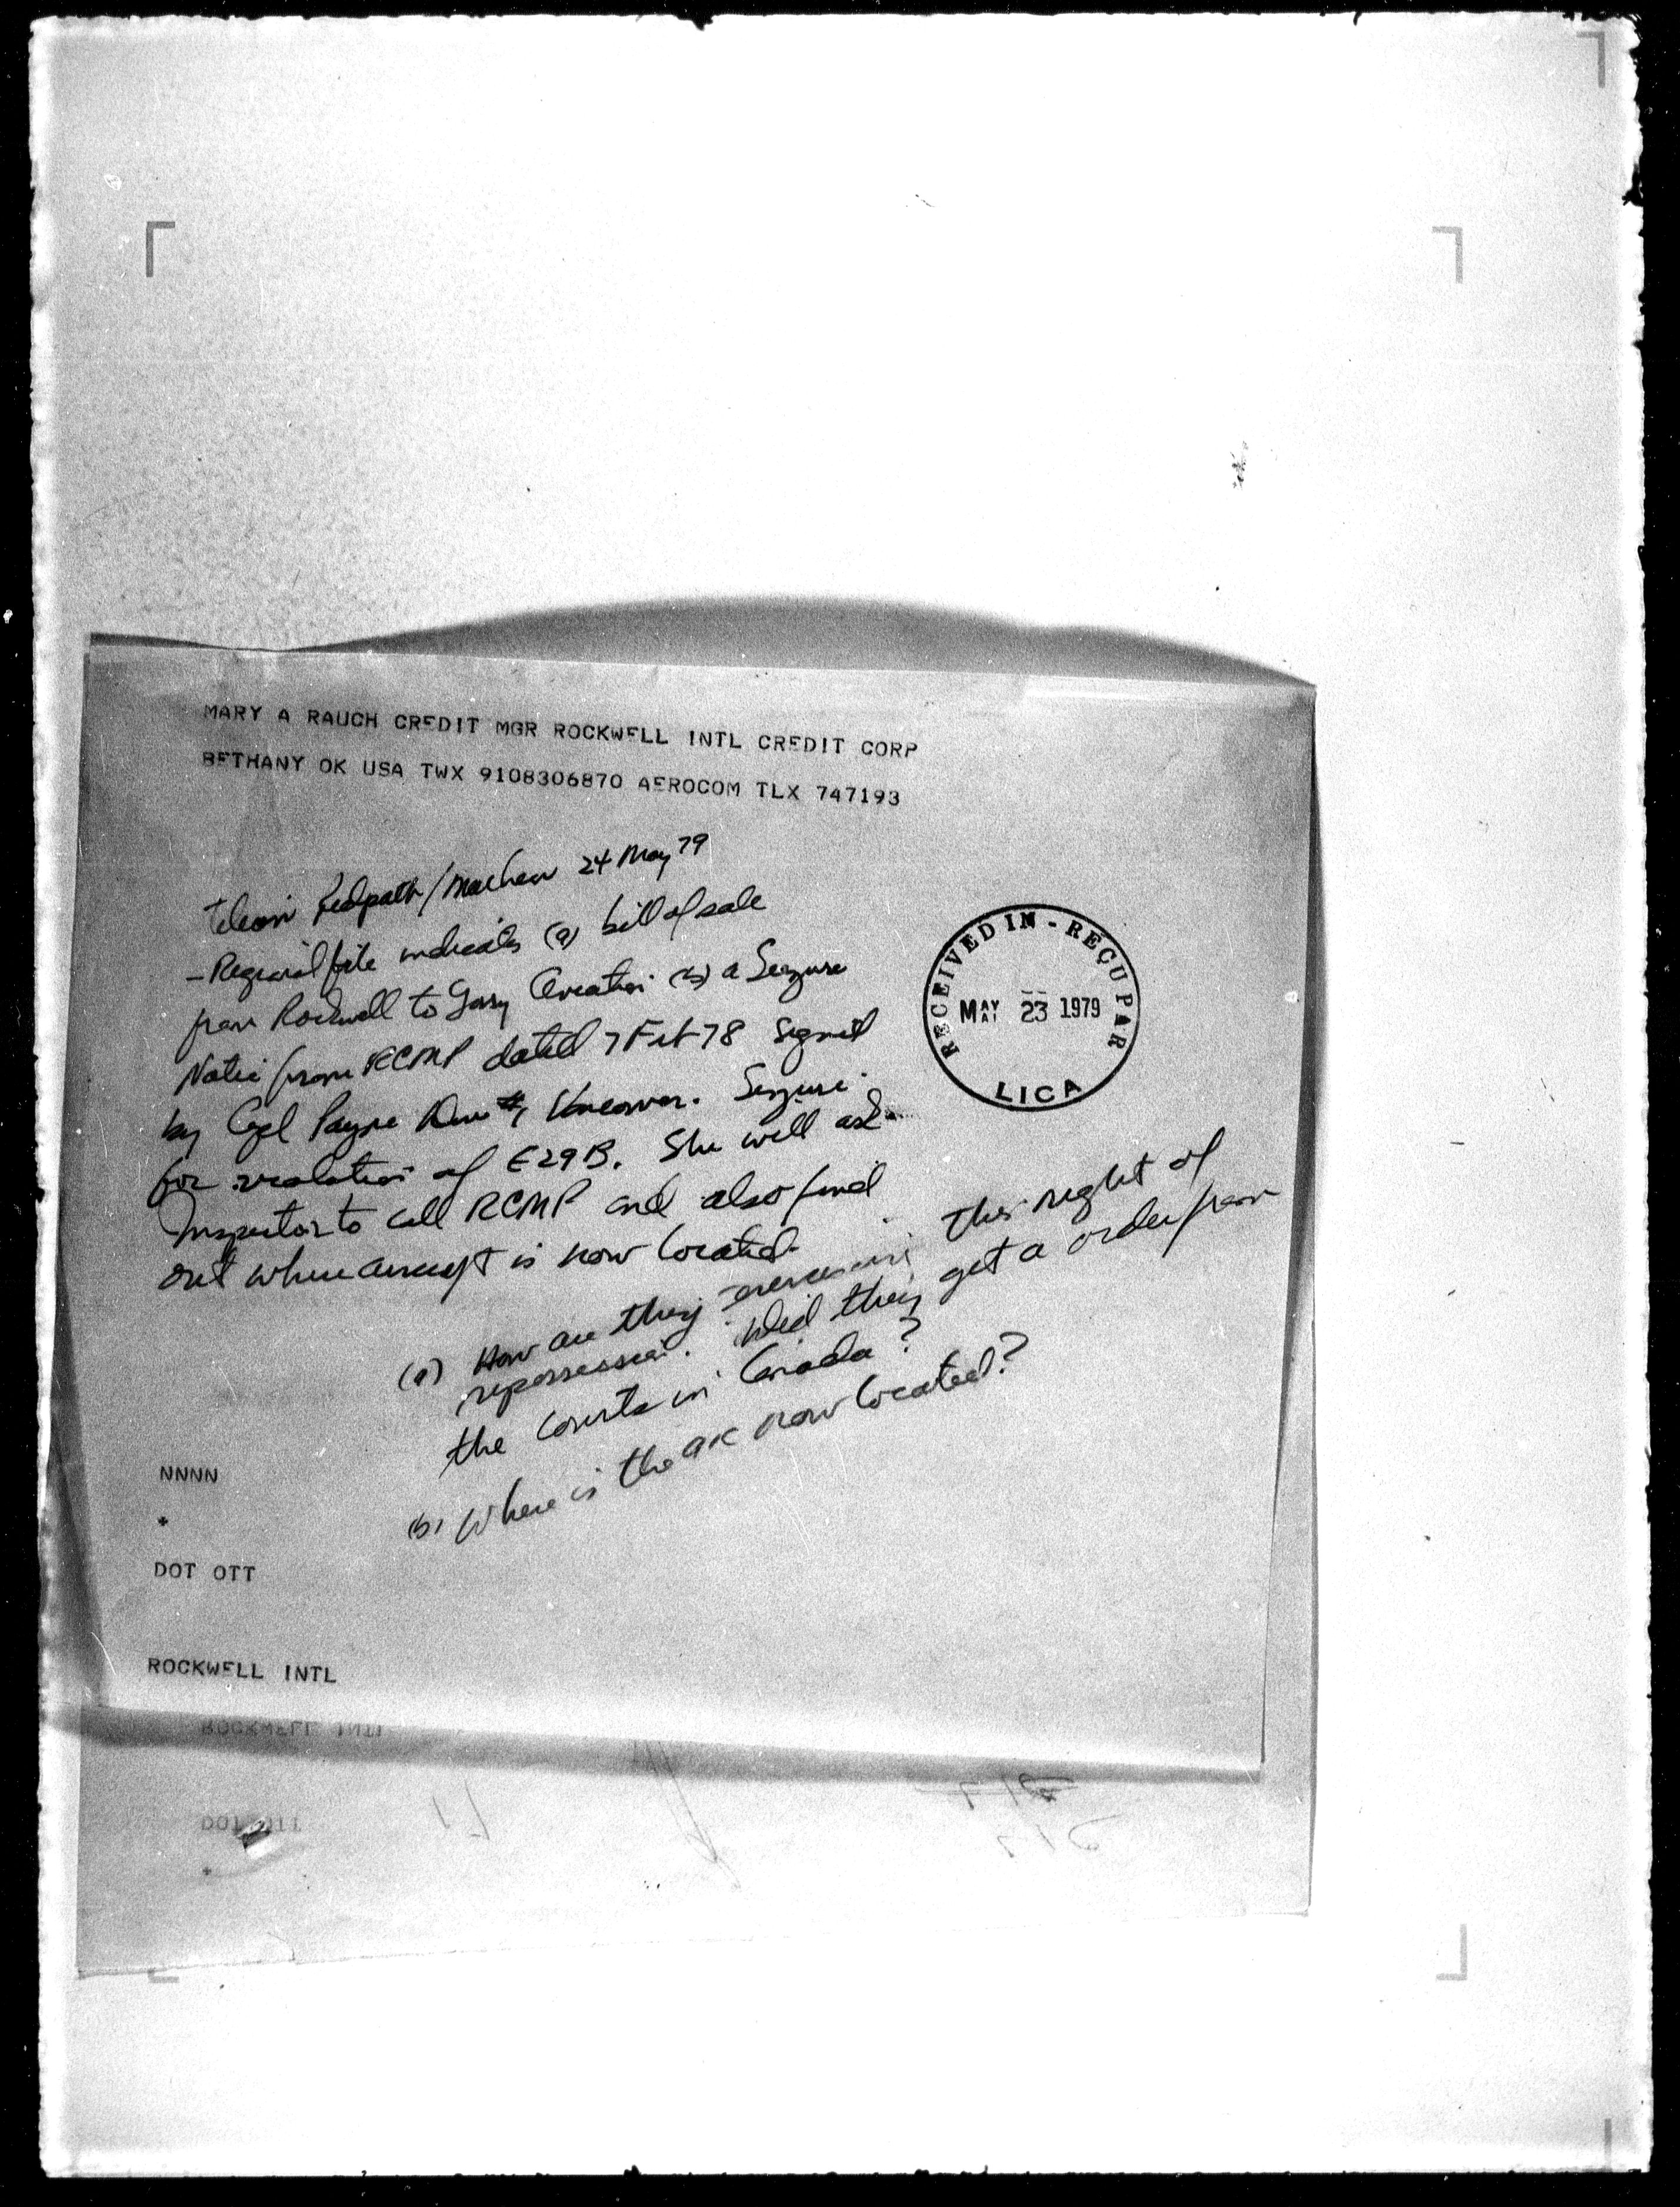 MARY A RAUCH CREDIT MGR ROCKWELL INTL CREDIT CORP
BETHANY OK USA TWX 9108306870 AEROCOM TLX 747193
Redpath / 24 May 79
- Regional file indicates (a) bill of sale
from Rockwell to Aviation (b) a Seizure
Notice from RCMP dated 7 Feb 78 signed
by Cpl Payne Vancouver. Seizure
for violation of E29B. She will ask
Inspector to call RCMP and also find
out where aircraft is now located.
RECEIVED IN - REÇU PAR
MAY MAI 23 1979
LICA
(a) How are they exercising this right of
repossession. Did they get a order from
the Courts in Canada?
(b) Where is the a/c now located?
NNNN
+
DOT OTT
ROCKWELL INTL
ROCKWELL INTL
DOT OTT
+